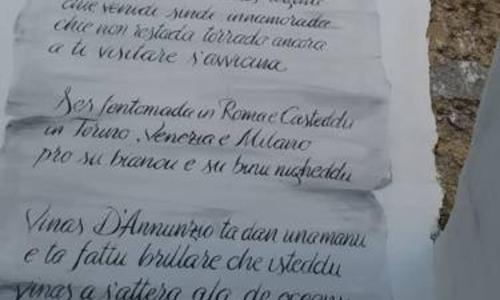 chie venidi sindi innamorada
chie non restada torrada ancora
a ti visitare s'avvicina
Ses fentomada in Roma e Casteddu
in Torino, Venezia e Milano
pro su biancu e su binu nigheddu
Vinas D'Annunzio ta dan una manu
e ta fattu brillare che isteddu
vinas a s'attera ala de